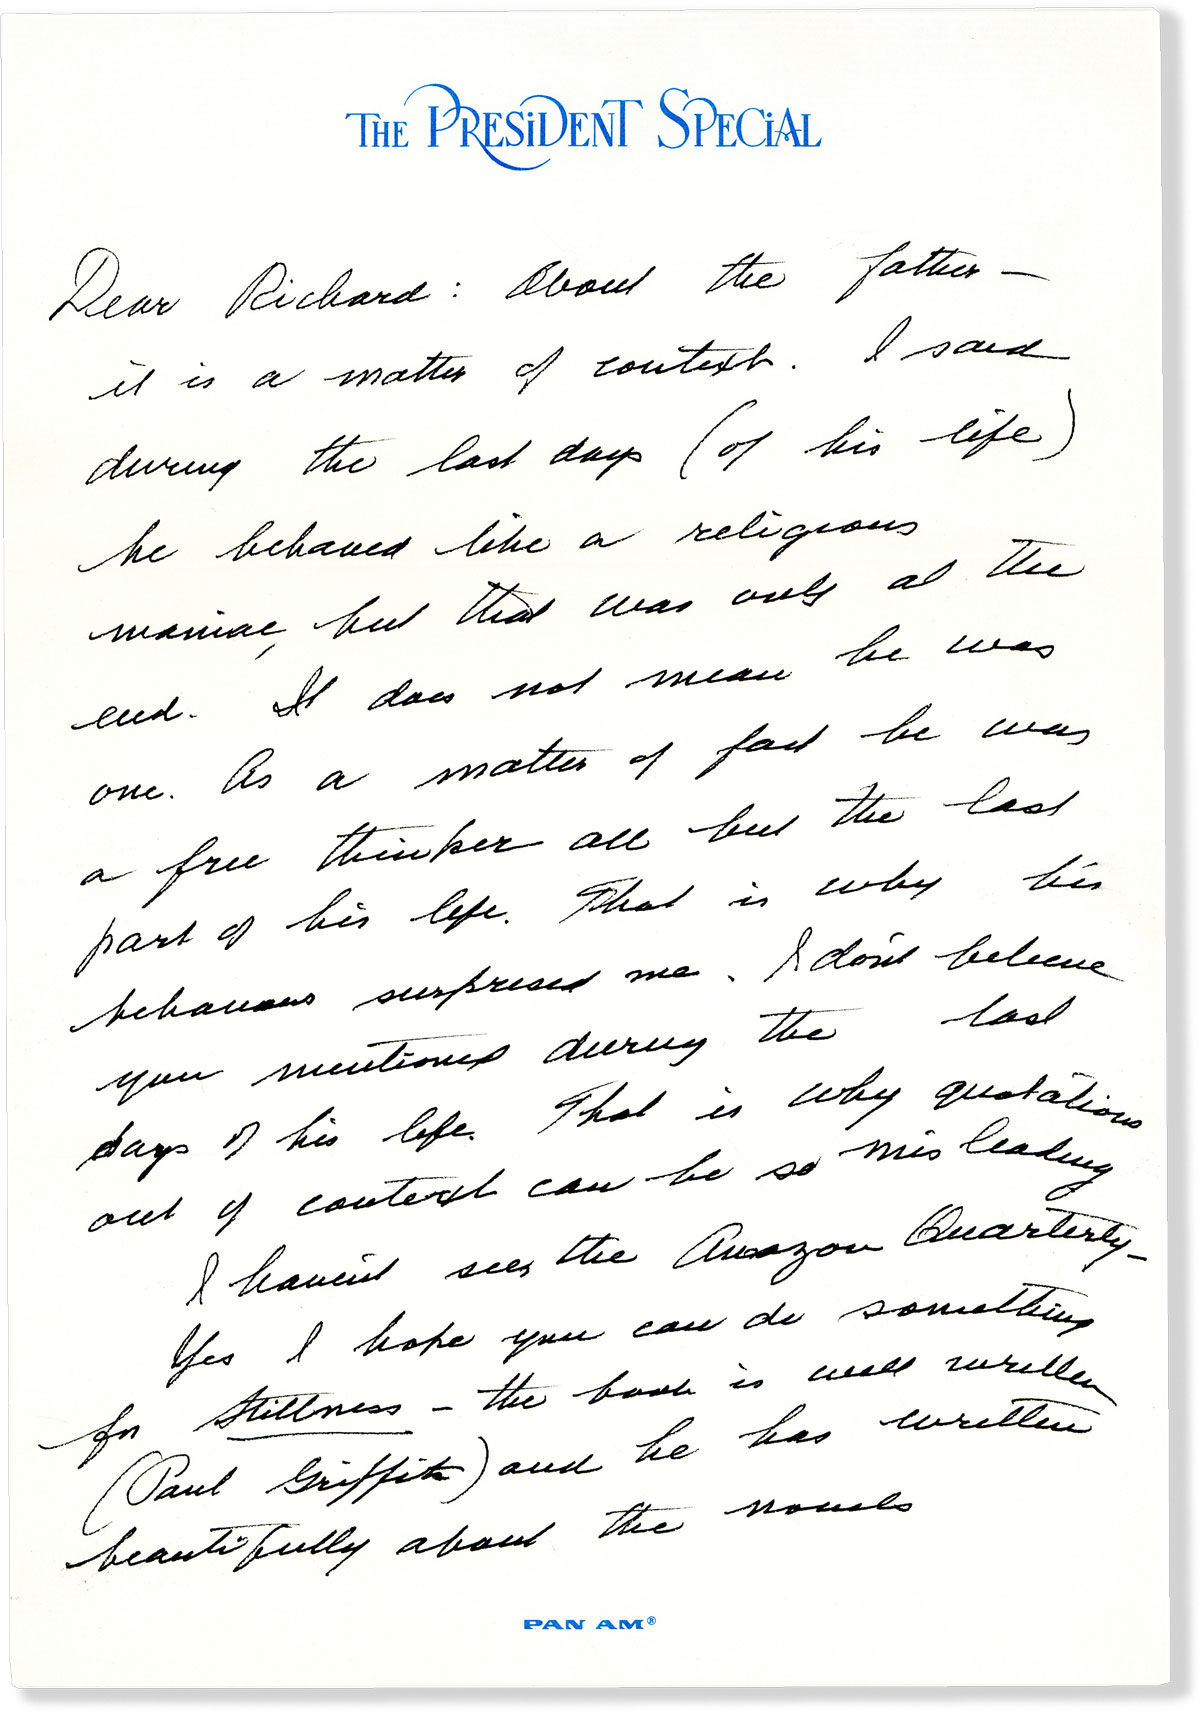 THE PRESiDENT SPECiAL
Dear Richard: About the father —
it is a matter of context. I said
during the last days (of his life)
he behaved like a religious
maniac, but that was only at the
end. It does not mean he was
one. As a matter of fact he was
a free thinker all but the last
part of his life. That is why his
behaviour surprised me. I don't believe
you mentioned during the last
days of his life. That is why quotations
out of context can be so misleading
I haven't seen the Amazon Quarterly —
Yes I hope you can do something
for Stillness — the book is well written
(Paul Griffith) and he has written
beautifully about the novels
PAN AM®